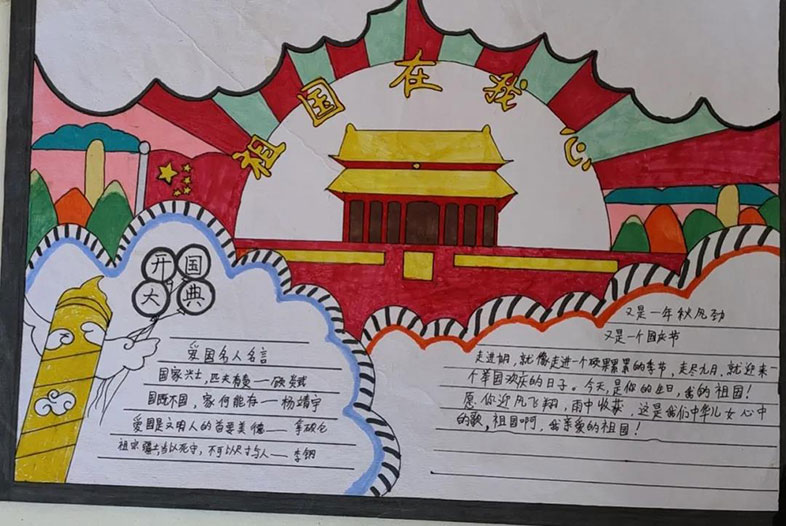 祖国在我心
开国
大典
爱国名人名言
国家兴亡,匹夫有责——顾炎武
国既不国,家何能存——杨靖宇
爱国是文明人的首要美德——拿破仑
祖宗疆土当以死守,不可以尺寸与人——李纲
又是一年秋风劲
又是一个国庆节
走进,就像走进一个硕果累累的季节,走尽九月,就迎来一
个举国欢庆的日子。今天,是你的生日,我的祖国!
愿你迎风飞翔,雨中收获,这是我们中华儿女心中
的歌,祖国啊,我亲爱的祖国!